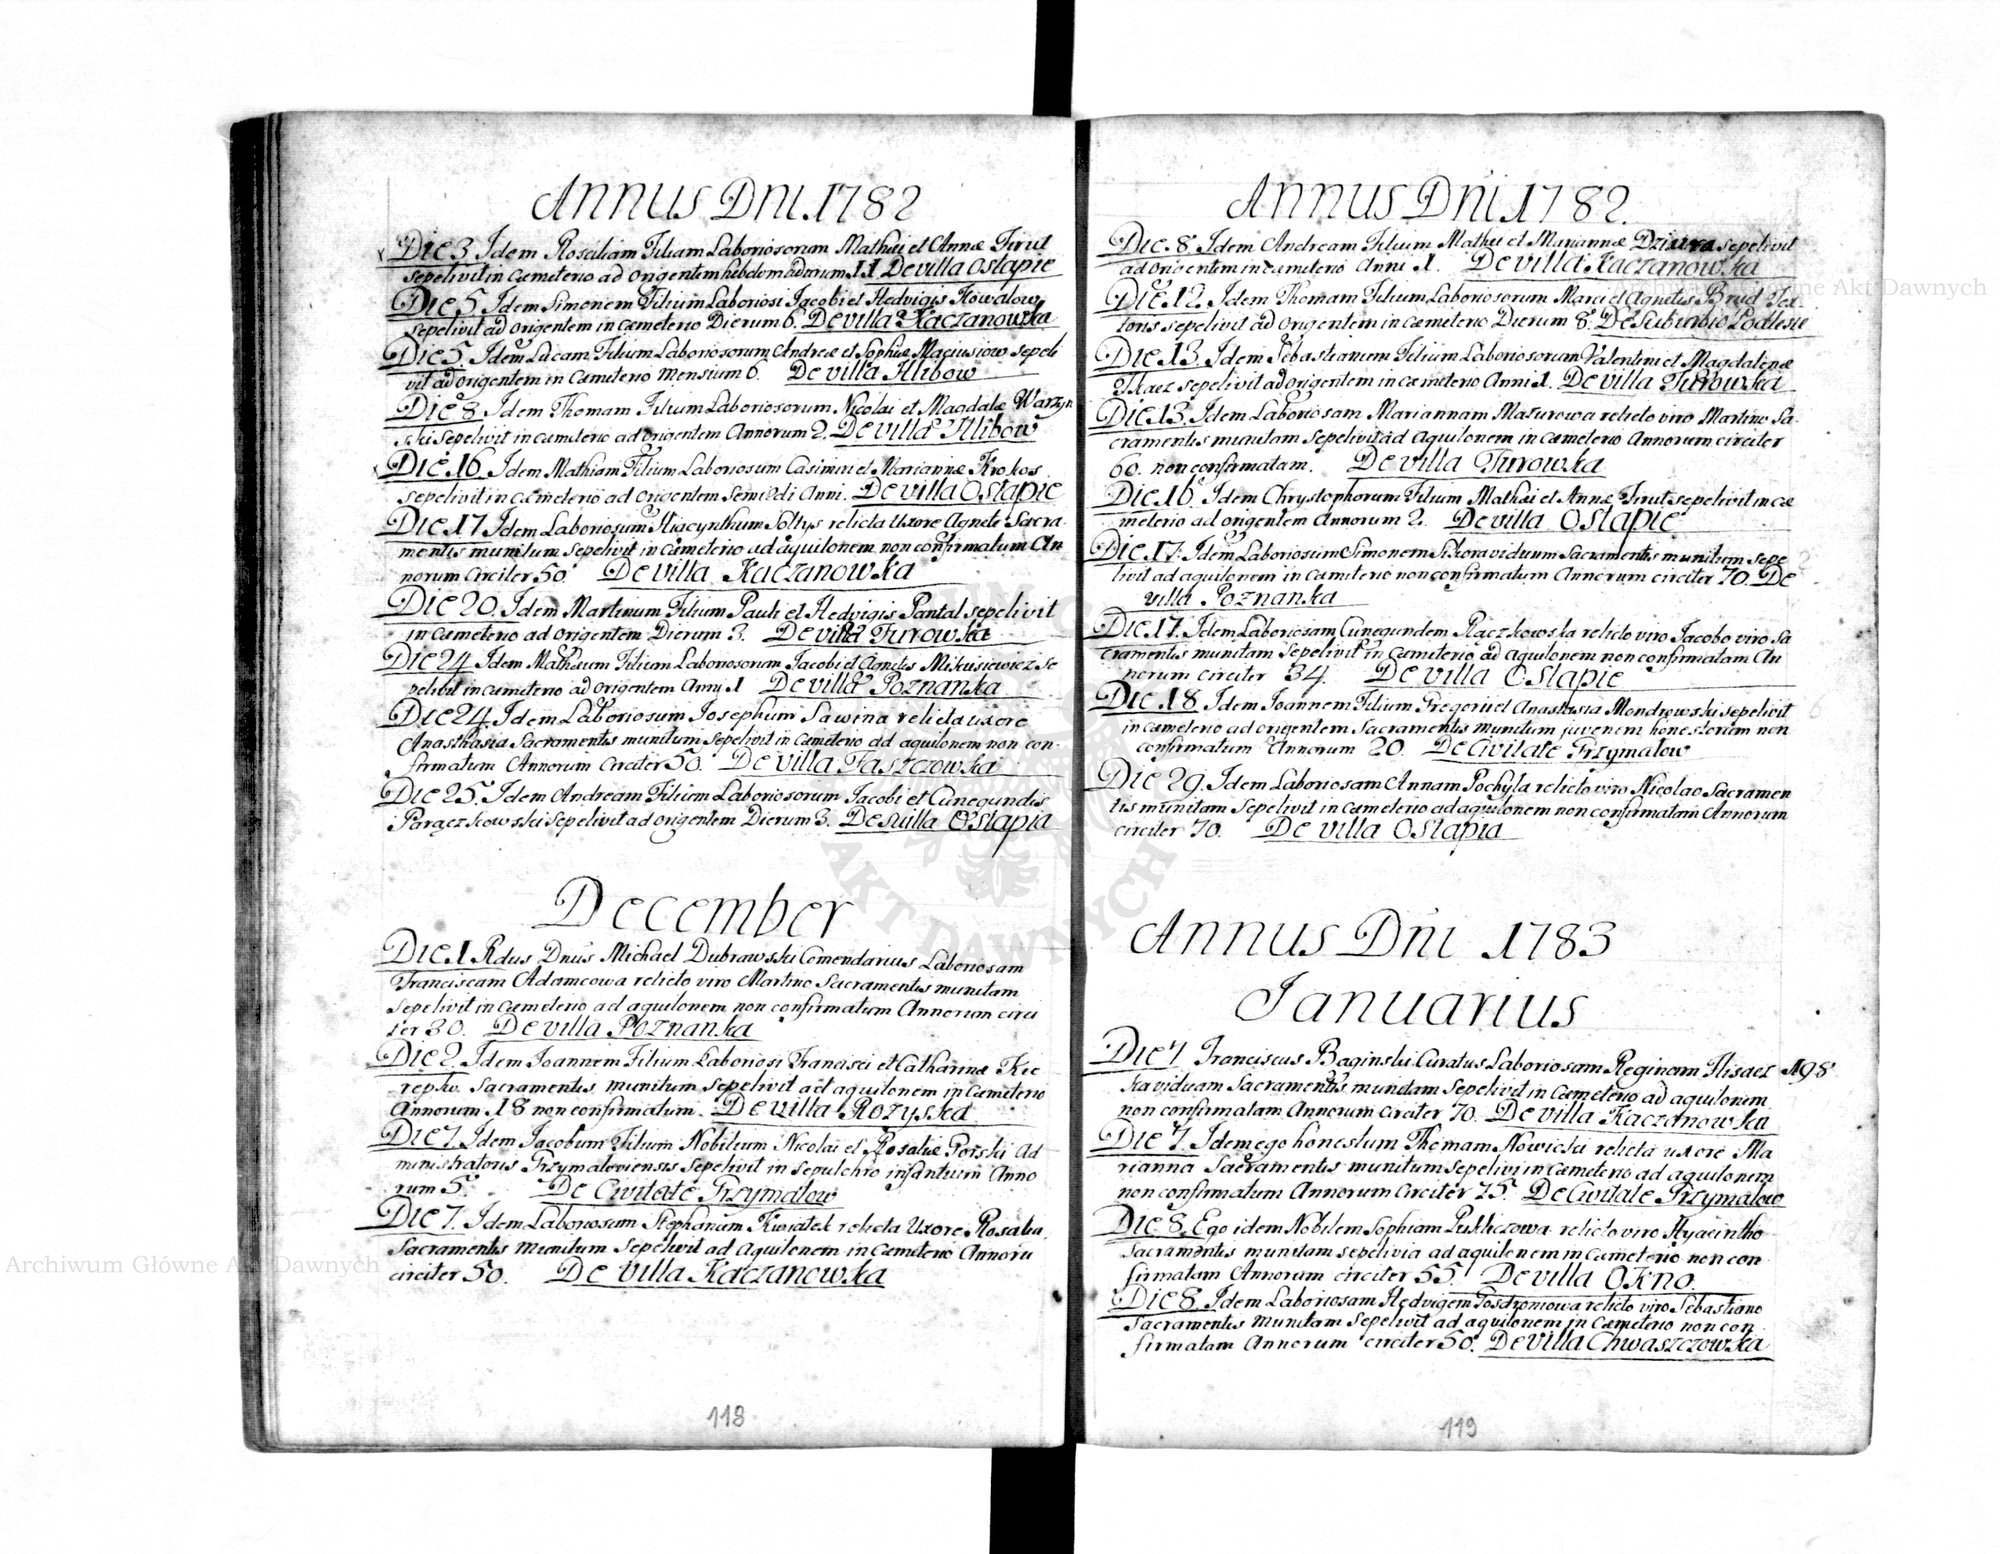 Annus Dni. 1782
Die 3. Idem Rosaliam Filiam Laboriosorum Mathæi et Annæ Firut
sepelivit in Cæmeterio ad Origentem hebdomadarum 11 De villa Ostapie
Die 5. Idem Simonem Filium Laboriosi Jacobi et Hedvigis Kowalow
sepelivit ad origentem in cæmeterio Dierum 6. De villa Kaczanowka
Die 5. Idem Lucam Filium Laboriosorum Andreæ et Sophiæ Maciusiow sepeli
vit ad origentem in Cæmeterio Mensium 6. De villa Hlibow
Die 8. Idem Thomam Filium Laboriosorum Nicolai et Magdalæ Warzyn
ski Sepelivit in cæmeterio ad origentem Annorum 2. De villa Hlibow
Die 16. Idem Mathiam Filium Laboriosum Casimiri et Mariannæ Krokos
sepelivit in cæmeterio ad origentem Semi 2di Anni. De villa Ostapie
Die 17 Idem Laboriosum Hiacynthum Soltys relicta Uxore Agnete Sacra-
mentis munitum Sepelivit in Cæmeterio ad aquilonem non confirmatum An
norum Circiter 50. De villa Kaczanowka
Die 20. Idem Martinum Filium Pauli et Hedvigis Pantal sepelivit
in Cæmeterio ad Origentem Dierum 3. De villa Turowka
Die 24 Idem Mathæum Filium Laboriosorum Jacobi et Agnetis Mikusiewicz Se
pelivit in cæmeterio ad Origentem Anni 1 De villa Poznanka
Die 24 Idem Laboriosum Josephum Sawina relicta uxore
Anasthasia Sacramentis munitum sepelivit in Cæmeterio ad aquilonem non con-
firmatum Annorum Circiter 50. De villa Faszczowka
Die 25. Idem Andream Filium Laboriosorum Jacobi et Cunegundis
Paraczkowski Sepelivit ad origentem Dierum 3. De villa Ostapia
December
Die 1 Rdus Dnus Michael Dubrawski Comendarius Laboriosam
Franciscam Adamcowa relicto viro Martino Sacramentis munitam
sepelivit in cæmeterio ad aquilonem non confirmatam Annorum circi
ter 30. De villa Poznanka
Die 2. Idem Joannem Filium Laboriosi Francisci et Catharinæ Kie
repko. Sacramentis munitum Sepelivit ad aquilonem in Cæmeterio
Annorum 18 non confirmatum. De villa Rozyska
Die 7. Idem Jacobum Filium Nobilium Nicolai et Rosaliæ Porski Ad
ministratoris Grzymaloviensis Sepelivit in sepulchro infantium Anno
rum 5. De Civitate Grzymalow
Die 7. Idem Laboriosum Stephanum Kwiatek relicta Uxore Rosalia
Sacramentis munitum Sepelivit ad Aquilonem in Cæmeterio Annoru
circiter 50. De Villa Kaczanowka
118
Annus Dni 1782.
Die. 8. Idem Andream Filium Mathei et Mariannæ Dziura sepelivit
ad Origentem in cæmeterio Anni 1. De villa Kaczanowka
Die. 12. Idem Thomam Filium Laboriosorum Marci et Agnetis Brud Tex-
toris sepelivit ad Origentem in cæmeterio Dierum 8. De Suburbio Podlesie
Die 13. Idem Sebastianum Filium Laboriosorum Valentini et Magdalenæ
Tkacz sepelivit ad origentem in cæmeterio Anni 1. De villa Turowka
Die 13. Idem Laboriosam Mariannam Mazurowa relicto viro Martino Sa-
cramentis munitam Sepelivit ad aquilonem in cæmeterio Annorum circiter
60. non confirmatam. De villa Turowka
Die 16. Idem Chrystophorum Filium Mathæi et Annæ Firut sepelivit in cæ
meterio ad origentem Annorum 2. De villa Ostapie
Die. 17. Idem Laboriosum Simonem Sikora viduum Sacramentis munitum sepe
livit ad aquilonem in cæmeterio non confirmatum Annorum circiter 70. De
villa Poznanka
Die 17. Idem Laboriosam Cunegundem Raczkowska relicto viro Jacobo viro Sa
cramentis munitam Sepelivit in Cæmeterio ad aquilonem non confirmatam An
norum circiter 34. De villa Ostapie
Die. 18. Idem Joannem Filium Gregorii et Anasthsia Mondrowski sepelivit
in cæmeterio ad origentem Sacramentis munitum juvenem honestorum non
confirmatum Annorum 20. De Civitate Grzymalow
Die 29. Idem Laboriosam Annam Pochyla relicto viro Nicolao Sacramen
tis munitam Sepelivit in cæmeterio ad aquilonem non confirmatam Annorum
circiter 70. De villa Ostapia
Annus Dni 1783
Januarius
Die 7. Franciscus Baginski Curatus Laboriosam Reginam Hisacz 198
ka viduam Sacramentis munitam Sepelivit in Cæmeterio ad aquilonem
non confirmatam Annorum Circiter 70. De villa Kaczanowka
Die 7. Idem ego honestum Thomam Nowicki relicta uxore Ma
rianna Sacramentis munitum sepelivi in Cæmeterio ad aquilonem
non confirmatum Annorum Circiter 75. De Civitate Grzymalow
Die 8. Ego idem Nobilem Sophiam Pukliczowa relicto viro Hyacintho
Sacramentis munitam sepelivi a ad aquilonem in Cæmeterio non con
firmatam Annorum circiter 55. De villa Okno
Die 8. Idem Laboriosam Hedvigem relicto viro Sebastiano
Sacramentis munitam Sepelivit ad aquilonem in Cæmeterio non con
firmatam Annorum circiter 50. De villa Chwaszczowka
119
Archiwum Główne Akt Dawnych
Archiwum Główne Akt Dawnych
AKT DAWNYCH